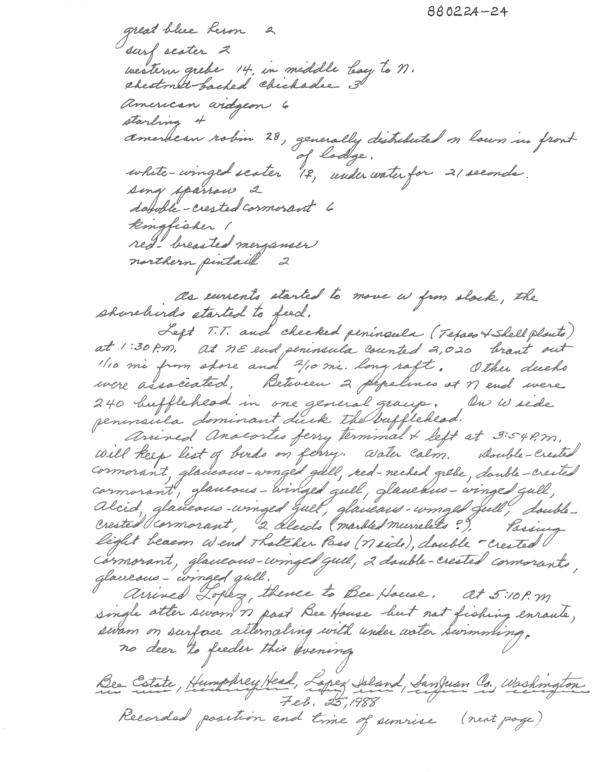 880224-24
great blue heron 2
surf scoter 2
western grebe 14, in middle bay to N.
chestnut-backed chickadee 3
American widgeon 6
starling 4
american robin 28, generally distributed n lawn in front
of lodge.
white-winged scoter 12, under water for 21 seconds.
song sparrow 2
double-crested cormorant 6
kingfisher 1
red-breasted merganser
northern pintail 2
As currents started to move w from slack, the
shorebirds started to feed.
Left T.T. and checked peninsula (Texaco & Shell plants)
at 1:30 P.M. At NE end peninsula counted 2,020 brant out
1/10 mi from shore and 2/10 mi. long raft. Other ducks
were associated. Between 2 pipelines at N end were
240 bufflehead in one general group. On W side
peninsula dominant duck the bufflehead.
Arrived Anacortes ferry terminal & left at 3:54 P.M.
Will keep list of birds on ferry. Water calm. Double-crested
cormorant, glaucous-winged gull, red-necked grebe, double-crested
cormorant, glaucous-winged gull, glaucous-winged gull,
Alcid, glaucous-winged gull, glaucous-winged gull, double-
crested cormorant, 2 Alcids (marbled murrelets?). Passing
light beacon W end Thatcher Pass (N side), double-crested
cormorant, glaucous-winged gull, 2 double-crested cormorants,
glaucous-winged gull.
Arrived Lopez, thence to Bee House. At 5:10 P.M
single otter swam N past Bee House but not fishing enroute,
swam on surface alternating with under water swimming.
no deer to feeder this evening
Bee Estate, Humphrey Head, Lopez Island, San Juan Co., Washington
Feb. 25, 1988
Recorded position and time of sunrise (next page)